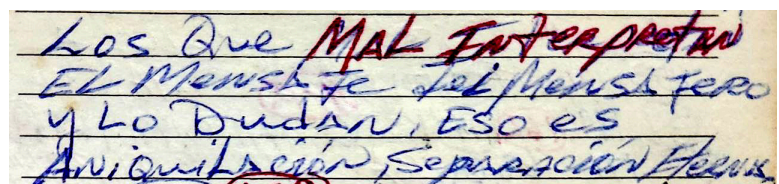 Los Que MAL InterpretAN
EL MensAJe deL MensAJero
y Lo DudAN, Eso es
ANiquiLAción, SepArAción EternA